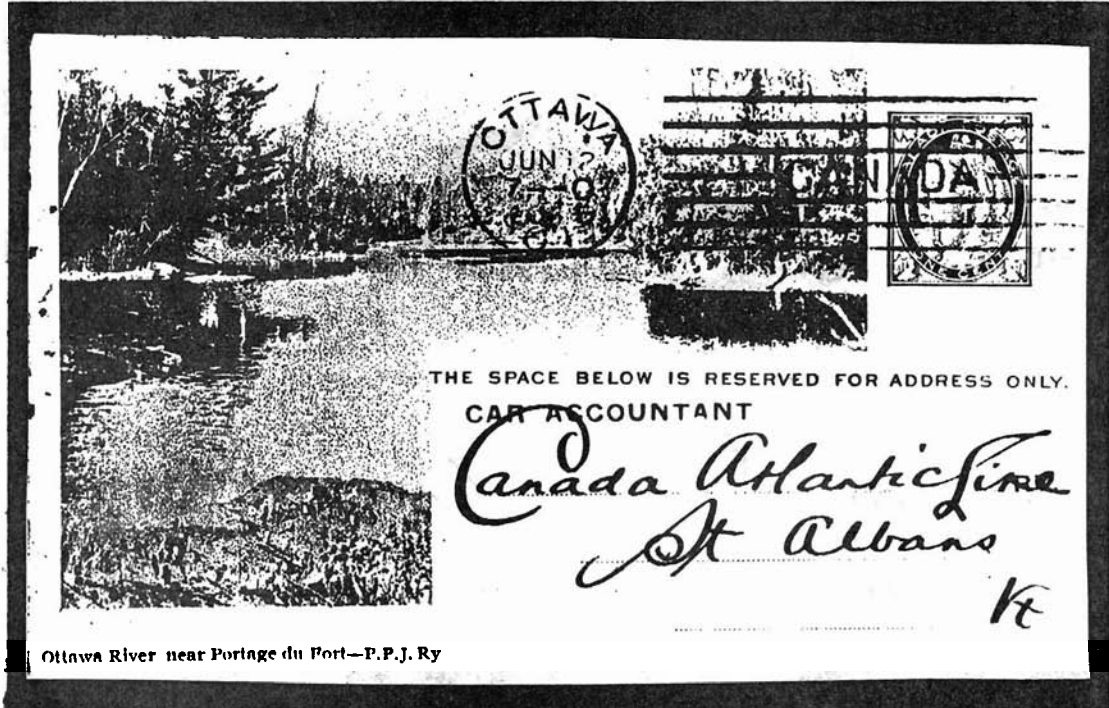 OTTAWA
JUN 12
CANADA
ONE CENT
THE SPACE BELOW IS RESERVED FOR ADDRESS ONLY.
CAR ACCOUNTANT
Canada Atlantic Line
St Albans
Vt
Ottawa River near Portage du Fort—P.P.J. Ry